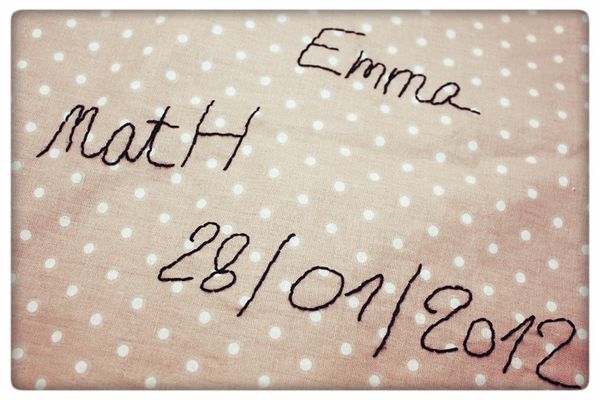 Emma
MatH
28/01/2012